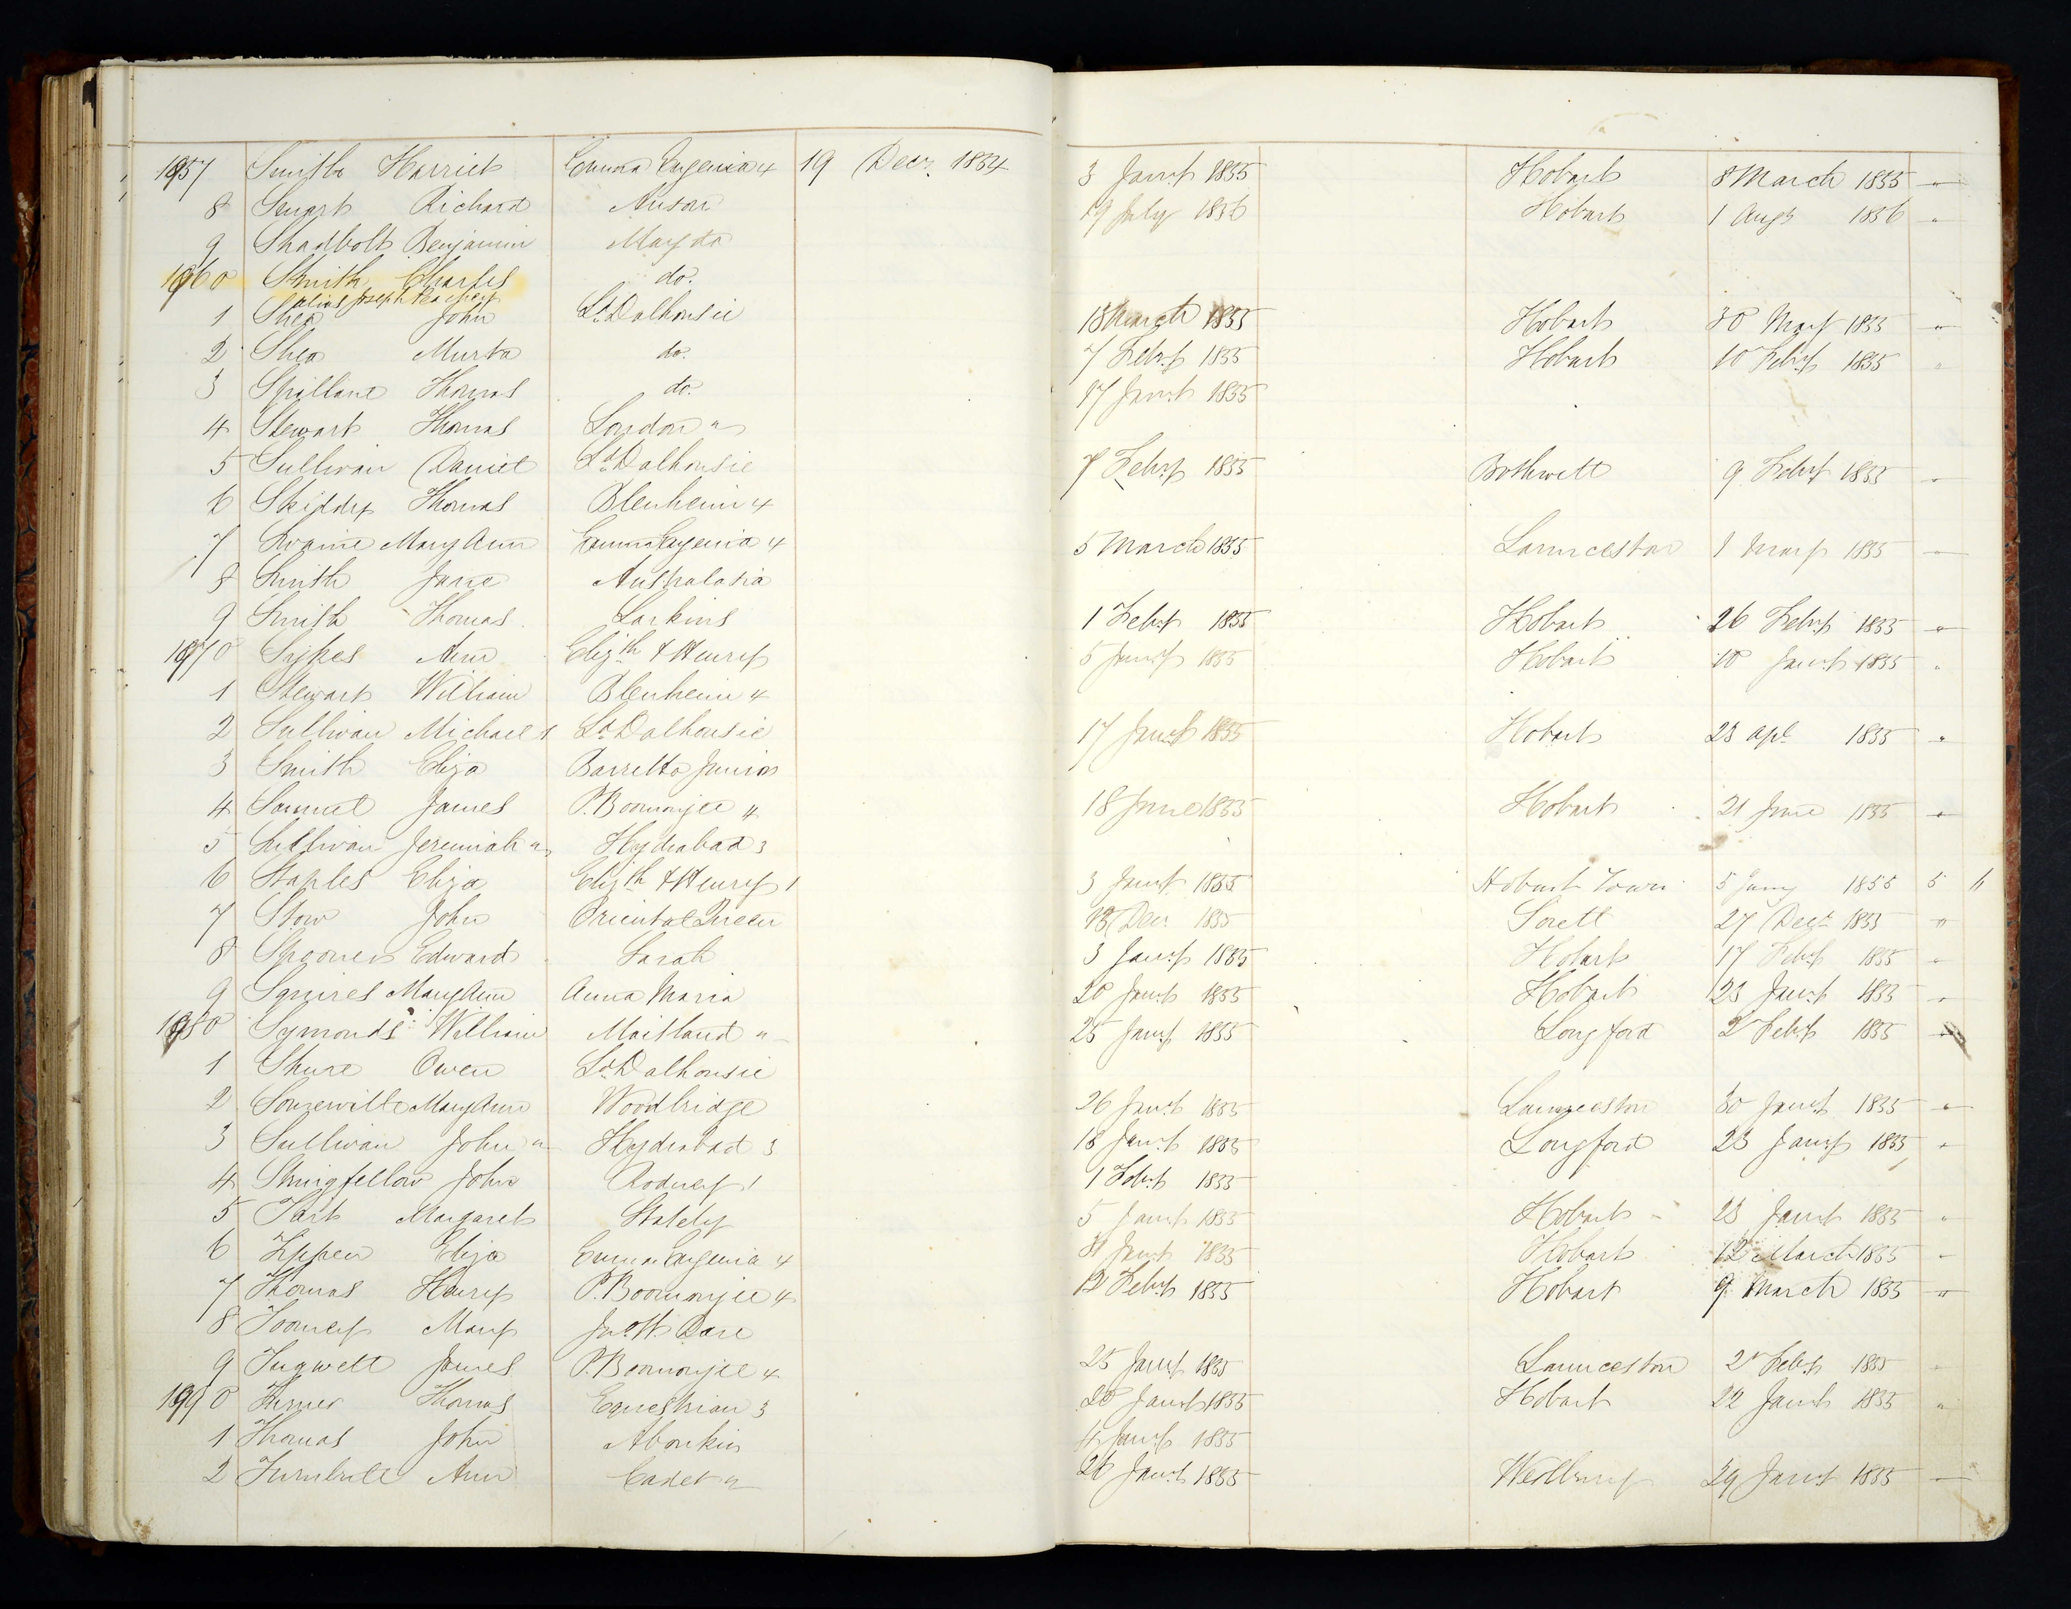 1957 Smith Harriet Emma Eugenia 4 19 Decr. 1854 3 Jany 1855 Hobart 8 March 1855 "
8 Smart Richard Anson 19 July 1856 Hobart 1 Augt 1856 "
9 Shadbolt Benjamin Mayda
1960 Smith Charles do.
alias Joseph
1 Shea John Ld Dalhousie March 1855 Hobart 30 May 1855 "
2 Shea Murta do. 7 Feby 1855 Hobart 10 Feby 1855 "
3 Spillane Thomas do. 17 Jany 1855
4 Stewart Thomas London "
5 Sullivan Daniel Ld Dalhousie 7 Feby 1855 Bothwell 9 Feby 1855 "
6 Skiddy Thomas Blenheim 4
7 Swaine Mary Ann Emma Eugenia 4 5 March 1855 Launceston 1855 "
8 Smith Jane Australasia
9 Smith Thomas Larkins 1 Feby 1855 Hobart 26 Feby 1855 "
1970 Sykes Ann Elizth & Henry 5 Jany 1855 Hobart 10 Jany 1855 "
1 Stewart William Blenheim 4
2 Sullivan Michael 1 Ld Dalhousie 17 Jany 1855 Hobart 23 Apl 1855 "
3 Smith Eliza Barretto Junior
4 Samuel James P. Boomonjee 4 18 June 1855 Hobart 21 June 1855 "
5 Sullivan Jeremiah " Hydrabad 3
6 Staples Eliza Elizth & Henry 1 3 Jany 1855 Hobart Town 5 Jany 1855 5 6
7 Stow John Oriental Queen Decr 1855 Sorell 27 Decr 1855 "
8 Spooner Edward Sarah 3 Jany 1855 Hobart 17 Feby 1855 "
9 Squires Mary Ann Anna Maria 20 Jany 1855 Hobart 23 Jany 1855 "
1980 Symonds William Maitland " 25 Jany 1855 Longford 2 Feby 1855 "
1 Shure Owen Ld Dalhousie
2 Somerville Mary Ann Woodbridge 26 Jany 1855 Launceston 30 Jany 1855 "
3 Sullivan John " Hydrabad 3 18 Jany 1855 Longford 23 Jany 1855 "
4 Stringfellow John Rodney 1 1 Feby 1855
5 Tait Margaret Stately 5 Jany 1855 Hobart 23 Jany 1855 "
6 Eliza Emma Eugenia 4 Jany 1855 Hobart 12 March 1855 "
7 Thomas Henry P. Boomonjee 4 12 Feby 1855 Hobart 9 March 1855 "
8 Toomey Mary Jno Wm Dare
9 Tugwell James P. Boomonjee 4 25 Jany 1855 Launceston 2 Feby 1855 "
1990 Turner Thomas Equestrian 3 20 Jany 1855 Hobart 22 Jany 1855 "
1 Thomas John Aboukir 4 Jany 1855
2 Turnbull Ann Cadet " 26 Jany 1855 Westbury 29 Jany 1855 "